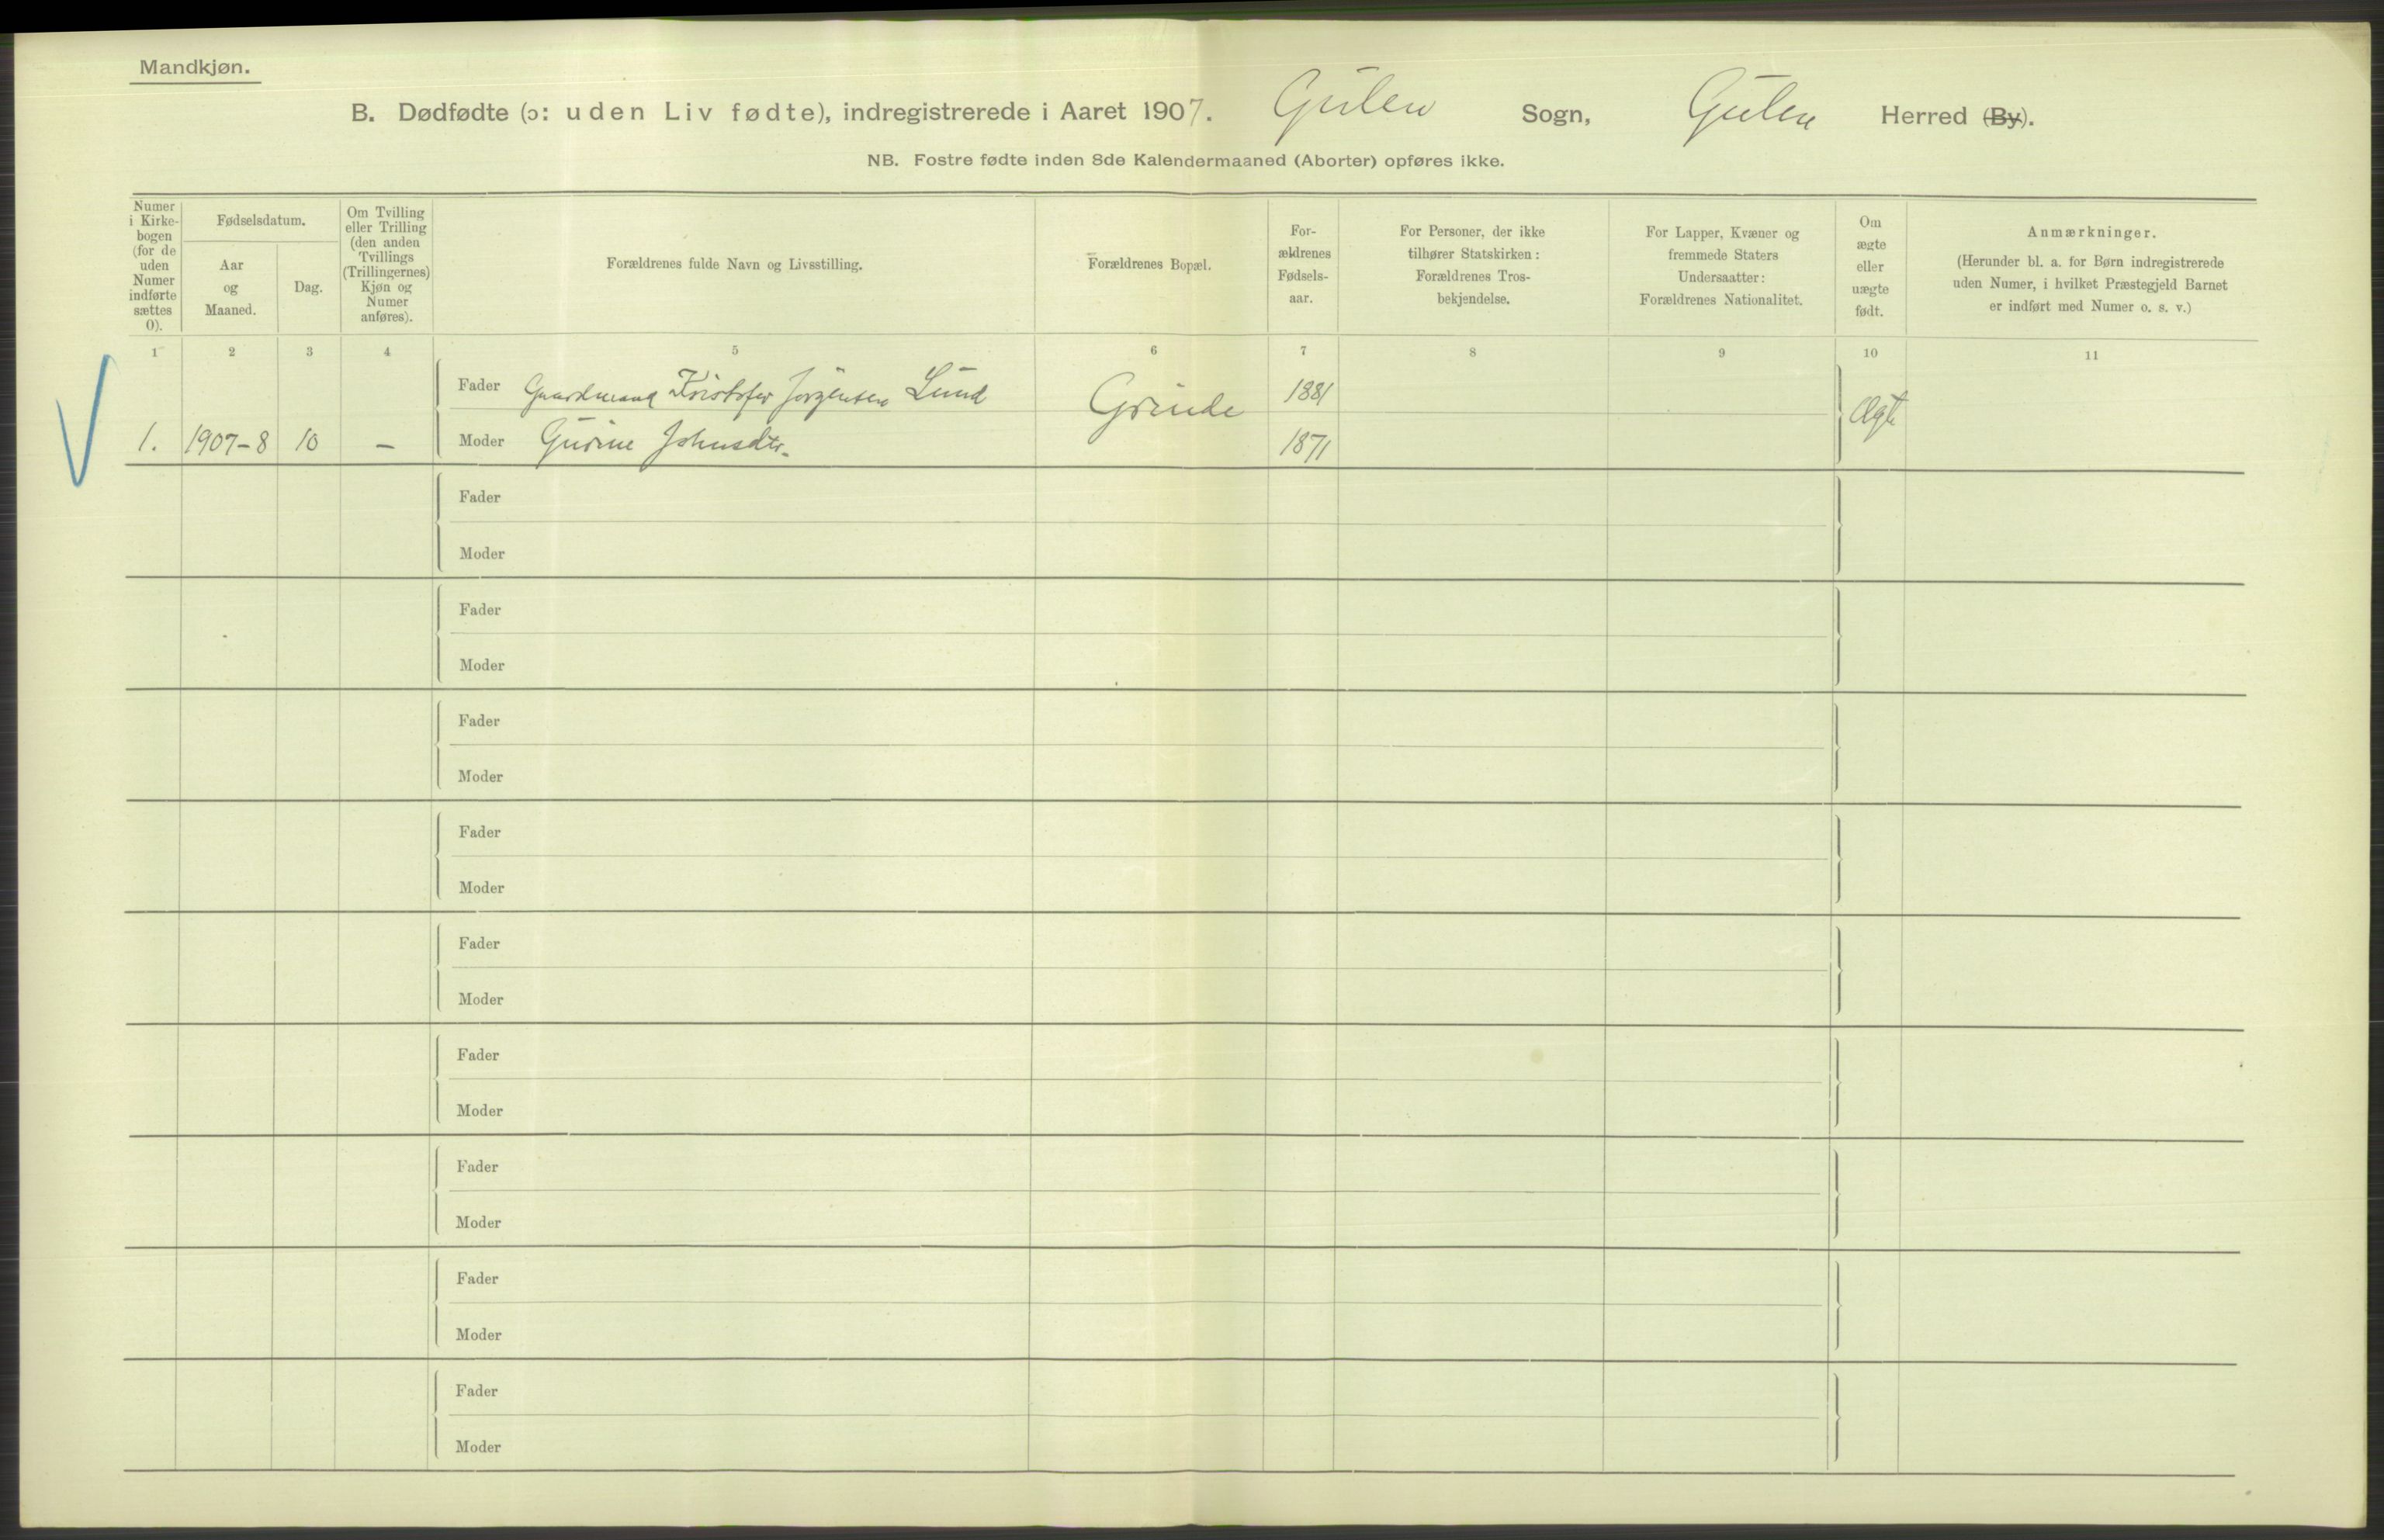 Mandkjøn.
B. Dødfødte (ɔ: uden Liv fødte), indregistrerede i Aaret 1907. Gulen Sogn, Gulen Herred (By).
NB. Fostre fødte inden 8de Kalendermaaned (Aborter) opføres ikke.
Numer
i Kirke-
bogen
(for de
uden
Numer
indførte
sættes
0).
Fødselsdatum.
Aar
og
Maaned.
Dag.
Om Tvilling
eller Trilling
(den anden
Tvillings
(Trillingernes)
Kjøn og
Numer
anføres).
Forældrenes fulde Navn og Livsstilling.
Forældrenes Bopæl.
For-
ældrenes
Fødsels-
aar.
For Personer, der ikke
tilhører Statskirken:
Forældrenes Tros-
bekjendelse.
For Lapper, Kvæner og
fremmede Staters
Undersaatter:
Forældrenes Nationalitet.
Om
ægte
eller
uægte
født.
Anmærkninger.
(Herunder bl. a. for Børn indregistrerede
uden Numer, i hvilket Præstegjeld Barnet
er indført med Numer o. s. v.)
1 2 3 4 5 6 7 8 9 10 11
Fader Gaardmand Kristofer Jørgensen Lund Grinde 1881 Ægte
1. 1907-8 10 – Moder Gurine Johnsdtr. 1871
Fader
Moder
Fader
Moder
Fader
Moder
Fader
Moder
Fader
Moder
Fader
Moder
Fader
Moder
Fader
Moder
Fader
Moder